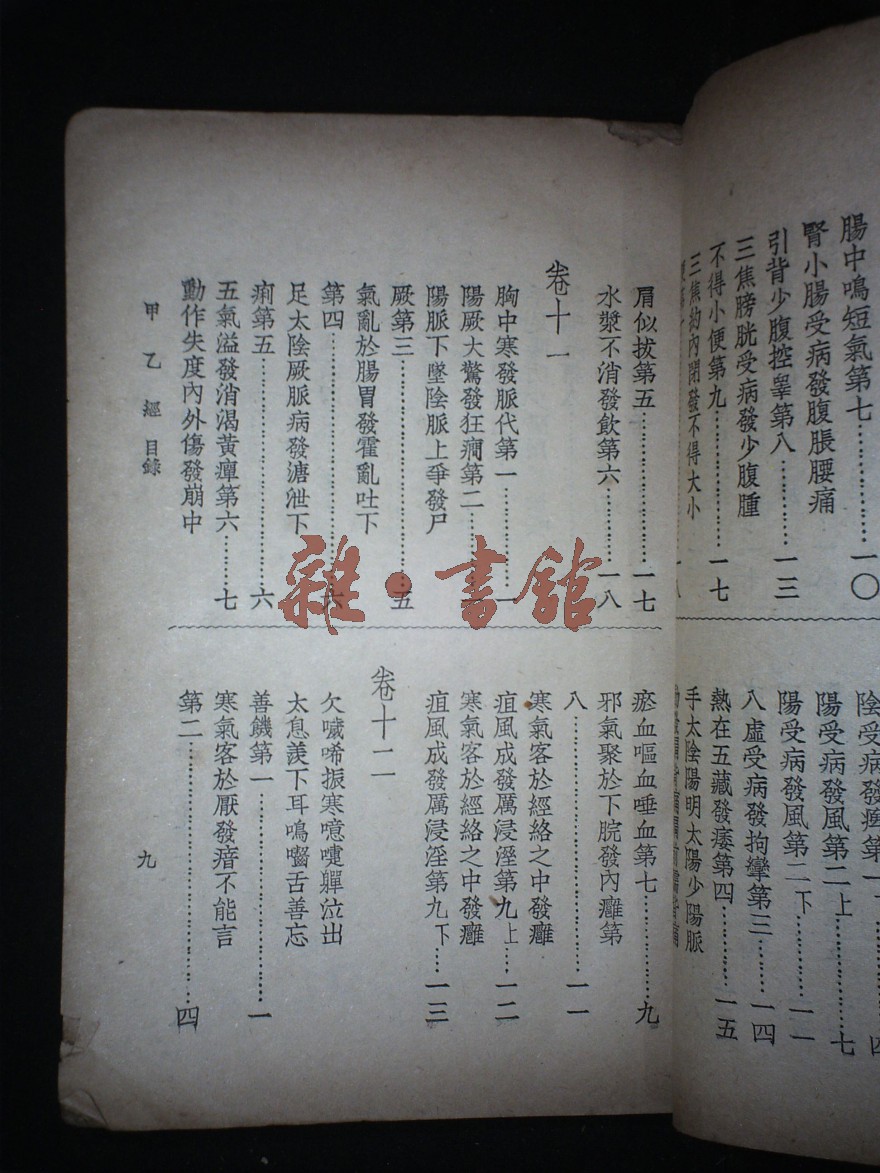 腸中鳴短氣第七……一〇
腎小腸受病發腹脹腰痛
引背少腹控睪第八……一三
三焦膀胱受病發少腹腫
不得小便第九……一七
三焦約內閉發不得大小
陰受病發痺第一下……四
陽受病發風第二上……七
陽受病發風第二下……一一
八虛受病發拘攣第三……一四
熱在五藏發痿第四……一五
手太陰陽明太陽少陽脈
肩似拔第五……一七
水漿不消發飲第六……一八
卷十一
胸中寒發脈代第一……一
陽厥大驚發狂癇第二……
陽脈下墜陰脈上爭發尸
厥第三……五
氣亂於腸胃發霍亂吐下
第四……六
足太陰厥脈病發溏泄下
痢第五……六
五氣溢發消渴黃癉第六……七
動作失度內外傷發崩中
瘀血嘔血唾血第七……九
邪氣聚於下脘發內癰第
八……一一
寒氣客於經絡之中發癰
疽風成發厲浸淫第九上……一二
寒氣客於經絡之中發癰
疽風成發厲浸淫第九下……一三
卷十二
欠噦唏振寒噫嚏軃泣出
太息羨下耳鳴嚙舌善忘
善饑第一……一
寒氣客於厭發瘖不能言
第二……四
甲乙經 目錄
九
雜·書館